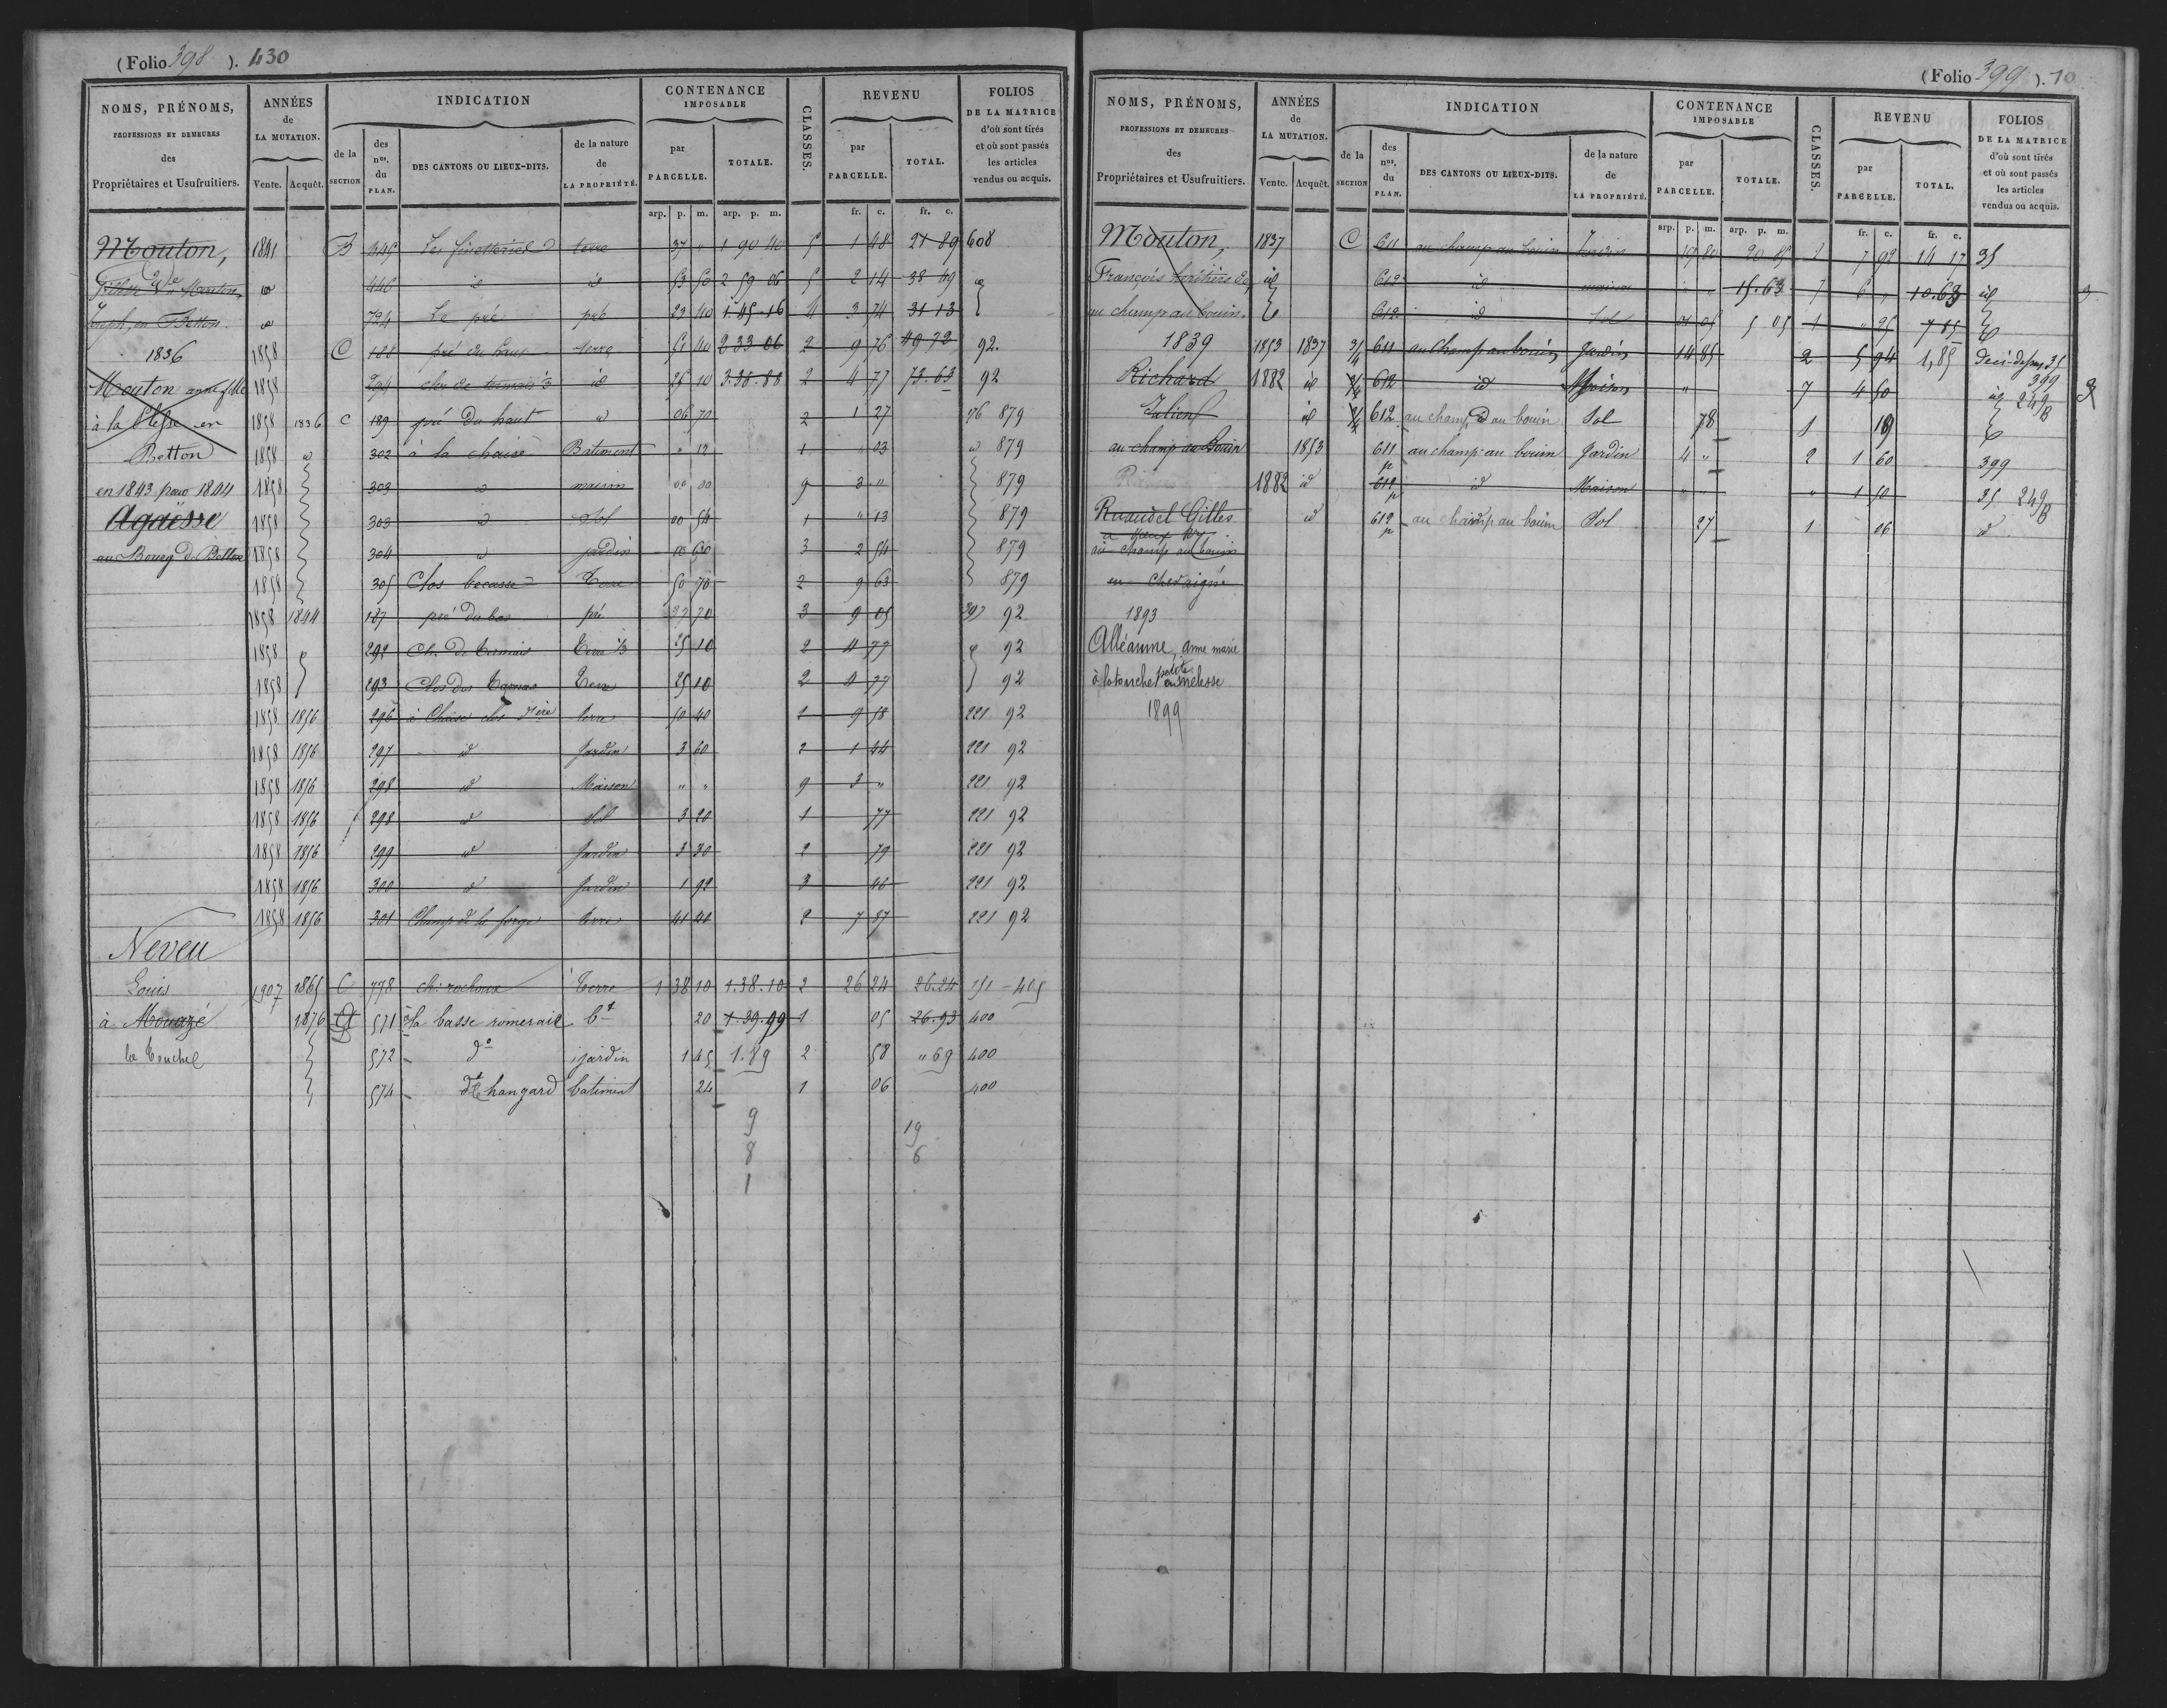 (Folio 398 ). 430
NOMS, PRÉNOMS, PROFESSIONS ET DEMEURES des Propriétaires et Usufruitiers.
ANNÉES de LA MUTATION. Vente. Acquêt.
INDICATION de la SECTION des nos. du PLAN. DES CANTONS OU LIEUX-DITS. de la nature de LA PROPRIÉTÉ.
CONTENANCE IMPOSABLE par PARCELLE. TOTALE.
CLASSES.
REVENU par PARCELLE. TOTAL.
FOLIOS DE LA MATRICE d'où sont tirés et où sont passés les articles vendus ou acquis.
arp. p. m. arp. p. m. fr. c. fr. c.
Mouton, 1841 B 445 terre 37 " 1 90 40 5 1 48 21 89 608
Mouton id 446 id id 53 50 2 59 06 5 2 14 38 49 id
Joseph, en Betton. id 724 Le pré pré 23 40 1.45.16 4 3 74 31 13
1836 1858 C 188 pré du haut terre 51 40 2 33 06 2 9 76 49 72 92.
Mouton anne fille 1858 294 clos de id 25 10 3.38.88 2 4 77 73.63 92
à la en 1858 1836 C 189 pré du haut id 06 70 2 1 27 96 879
Betton 1858 id 302 à la chaise Bâtiment " 12 1 " 03 id 879
en 1843 pour 1844 1858 303 id maison 00 00 9 3 " 879
Agaësse 1858 303 id Sol 00 54 1 " 13 879
au Bourg de Betton 1858 304 id jardin 10 60 3 2 54 879
1858 305 Clos becasse Terre 50 70 2 9 63 879
1858 1844 187 pré du bas pré 37 70 3 9 05 397 92
1858 id 292 Ch. de Termais Terre 1/3 25 10 2 4 77 id 92
1858 293 Clos des Terre 25 10 2 4 77 92
1858 1856 296 à Chaise clos terre 50 40 2 9 58 221 92
1858 1856 297 id Jardin 3 60 2 1 44 221 92
1858 1856 298 id Maison " " 9 3 " 221 92
1858 1856 298 id Sol 3 20 1 77 221 92
1858 1856 299 id Jardin 3 30 2 79 221 92
1858 1856 300 id Jardin 1 92 3 46 221 92
1858 1856 301 Champ de la forge terre 41 40 2 7 87 221 92
Neveu
Louis 1907 1865 C 778 ch. rochoux Terre 1 38 10 1.38.10 2 26 24 26.24 151 - 405
à Mouazé 1876 D 571 la basse romerais bt 20 1.39.99 1 05 26.93 400
la Touche 572 do jardin 1 45 1.89 2 58 " 69 400
574 dt hangard batiment 24 1 06 400
9 19
8 6
1
(Folio 399 ). 10
NOMS, PRÉNOMS, PROFESSIONS ET DEMEURES des Propriétaires et Usufruitiers.
ANNÉES de LA MUTATION. Vente. Acquêt.
INDICATION de la SECTION des nos. du PLAN. DES CANTONS OU LIEUX-DITS. de la nature de LA PROPRIÉTÉ.
CONTENANCE IMPOSABLE par PARCELLE. TOTALE.
CLASSES.
REVENU par PARCELLE. TOTAL.
FOLIOS DE LA MATRICE d'où sont tirés et où sont passés les articles vendus ou acquis.
arp. p. m. arp. p. m. fr. c. fr. c.
Mouton, 1837 C 611 au champ au bouin Jardin 19 80 20 85 2 7 92 14 17 35
François héritiers de id 612 id maison " " 15.63 7 6 " 10.63 id
au champ au bouin. 612 id Sol 01 05 5 05 1 " 25 7 85
1839 1853 1837 3/4 611 au champ au bouin Jardin 14 85 2 5 94 1,85 deci-dessus 35 399
Richard 1882 id 3/4 612 id Maison " 7 4 50 id 249
Julien id 3/4 612 au champ au bouin Sol 78 1 19
au champ au Bouin 1853 611 p au champ au bouin Jardin 4 " 2 1 60 399
1882 id 612 p id Maison " " " 1 50 35 249
Ruaudel Gilles id 612 p au champ au bouin Sol 27 1 06 id
au champ au bouin
en Chevaigné
1893
Alléaume, anne marie
à la touche petite en melesse
1899